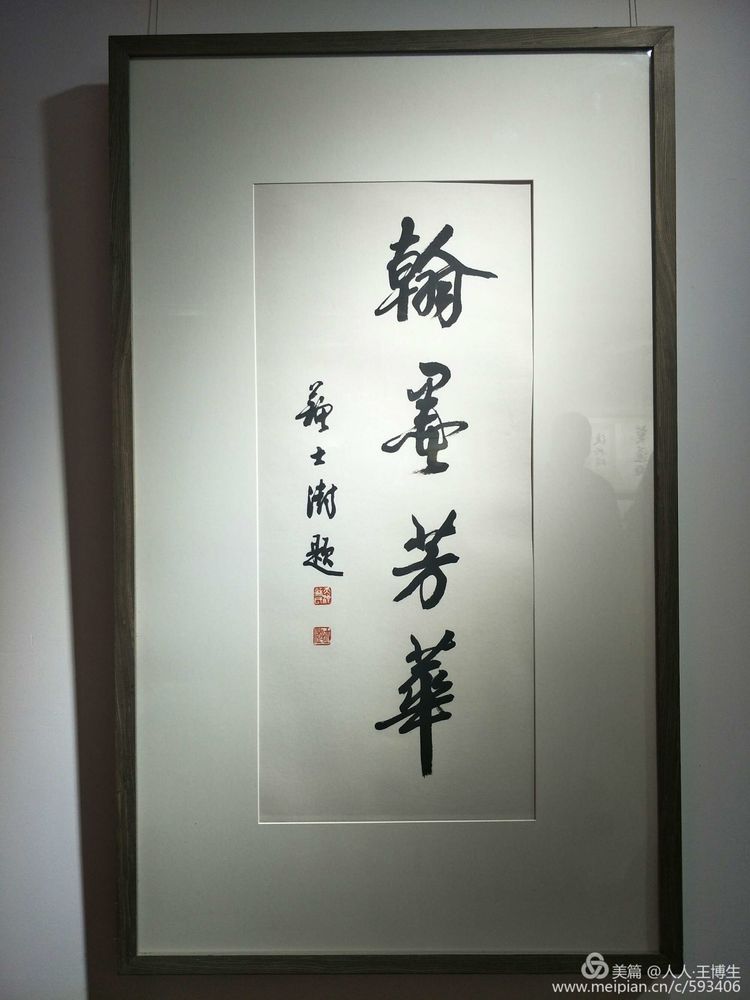 翰墨芳華
蘇士澍題
美篇 @人人·王博生
www.meipian.cn/c/593406